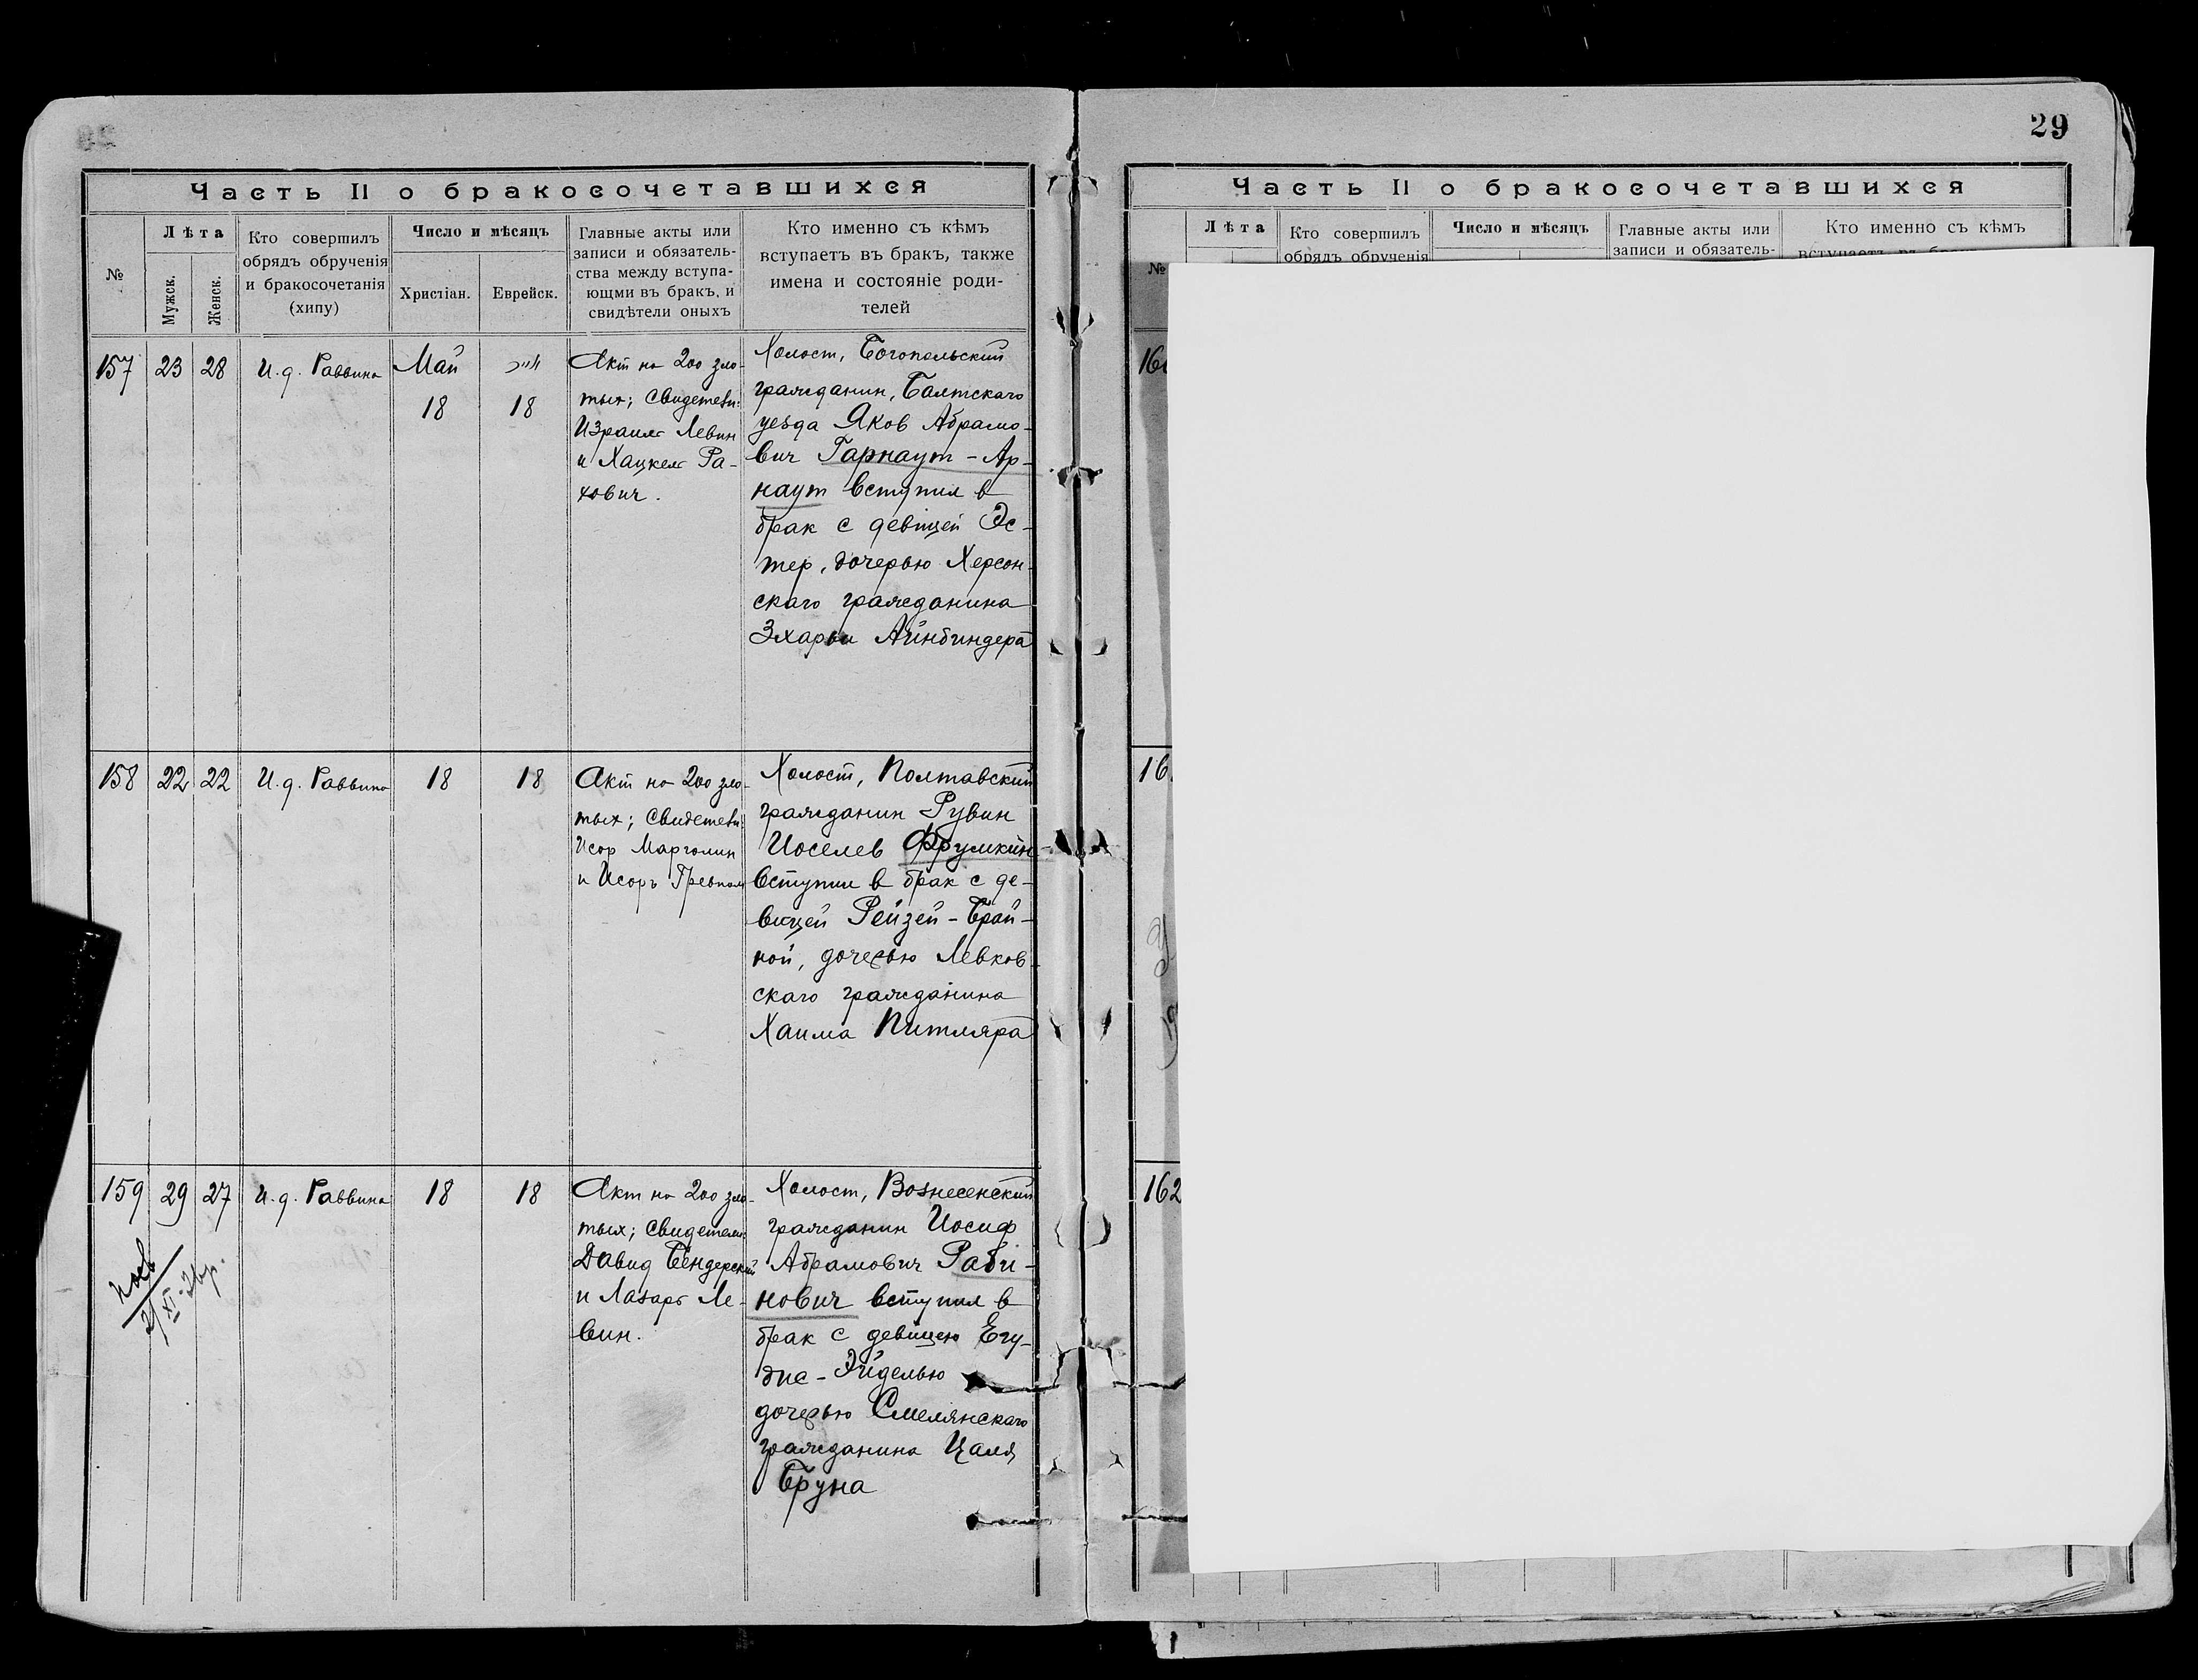 29
Часть II о бракосочетавшихся
№
Лѣта
Мужск.
Женск.
Кто совершилъ
обрядъ обрученія
и бракосочетанія
(хипу)
Число и мѣсяцъ
Христіан.
Еврейск.
Главные акты или
записи и обязатель-
ства между вступа-
ющми въ бракъ, и
свидѣтели оныхъ
Кто именно съ кѣмъ
вступаетъ въ бракъ, также
имена и состояніе роди-
телей
157
23
28
И. д. Раввина
Май
18
אייר
18
Акт на 200 зло-
тых; Свидетели:
Израиль Левин
и Хацкель Ра-
хович.
Холост, Богопольский
гражданин, Балтскаго
уезда Яков Абрамо-
вич Гарнаут-Ар-
наут вступил в
брак с девицей Эс-
тер, дочерью Херсон-
скаго гражданина
Зхарьи Айнбиндера
158
22
22
И. д. Раввина
18
18
Акт на 200 зло-
тых; Свидетели:
Исор Марголин
и Исоръ
Холост, Полтавский
гражданин Рувин
Иоселев Фрумкин
вступил в брак с де-
вицей Рейзей-Брай-
ной, дочерью Левков-
скаго гражданина
Хаима Питляра
159
29
27
И. д. Раввина
18
18
21/XI-21 г.
Акт на 200 зло-
тых; Свидетели:
Давид Бендерский
и Лазарь Ле-
вин.
Холост, Вознесенский
гражданин Иосиф
Абрамович Раби-
нович вступил в
брак с девицею Егу-
дис-Эйделью
дочерью Смелянскаго
гражданина Цаля
Бруна
Часть II о бракосочетавшихся
№
Лѣта
Кто совершилъ
обрядъ обрученія
Число и мѣсяцъ
Главные акты или
записи и обязатель-
Кто именно съ кѣмъ
16
16
162